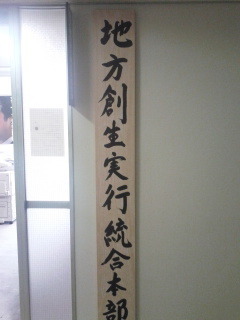 地方創生実行統合本部